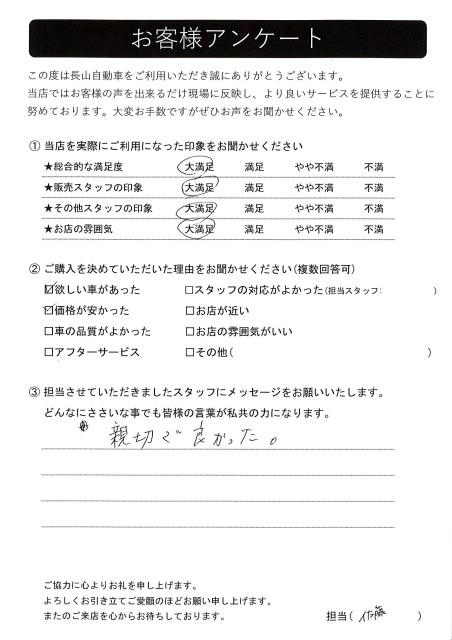 お客様アンケート
この度は長山自動車をご利用いただき誠にありがとうございます。
当店ではお客様の声を出来るだけ現場に反映し、より良いサービスを提供することに
努めております。大変お手数ですがぜひお声をお聞かせください。
① 当店を実際にご利用になった印象をお聞かせください
★総合的な満足度 大満足 満足 やや不満 不満
★販売スタッフの印象 大満足 満足 やや不満 不満
★その他スタッフの印象 大満足 満足 やや不満 不満
★お店の雰囲気 大満足 満足 やや不満 不満
② ご購入を決めていただいた理由をお聞かせください(複数回答可)
☑欲しい車があった □スタッフの対応がよかった(担当スタッフ: )
☑価格が安かった □お店が近い
□車の品質がよかった □お店の雰囲気がいい
□アフターサービス □その他( )
③ 担当させていただきましたスタッフにメッセージをお願いいたします。
どんなにささいな事でも皆様の言葉が私共の力になります。
親切で良かった。
ご協力に心よりお礼を申し上げます。
よろしくお引き立てご愛顧のほどお願い申し上げます。
またのご来店を心からお待ちしております。 担当( 佐藤 )